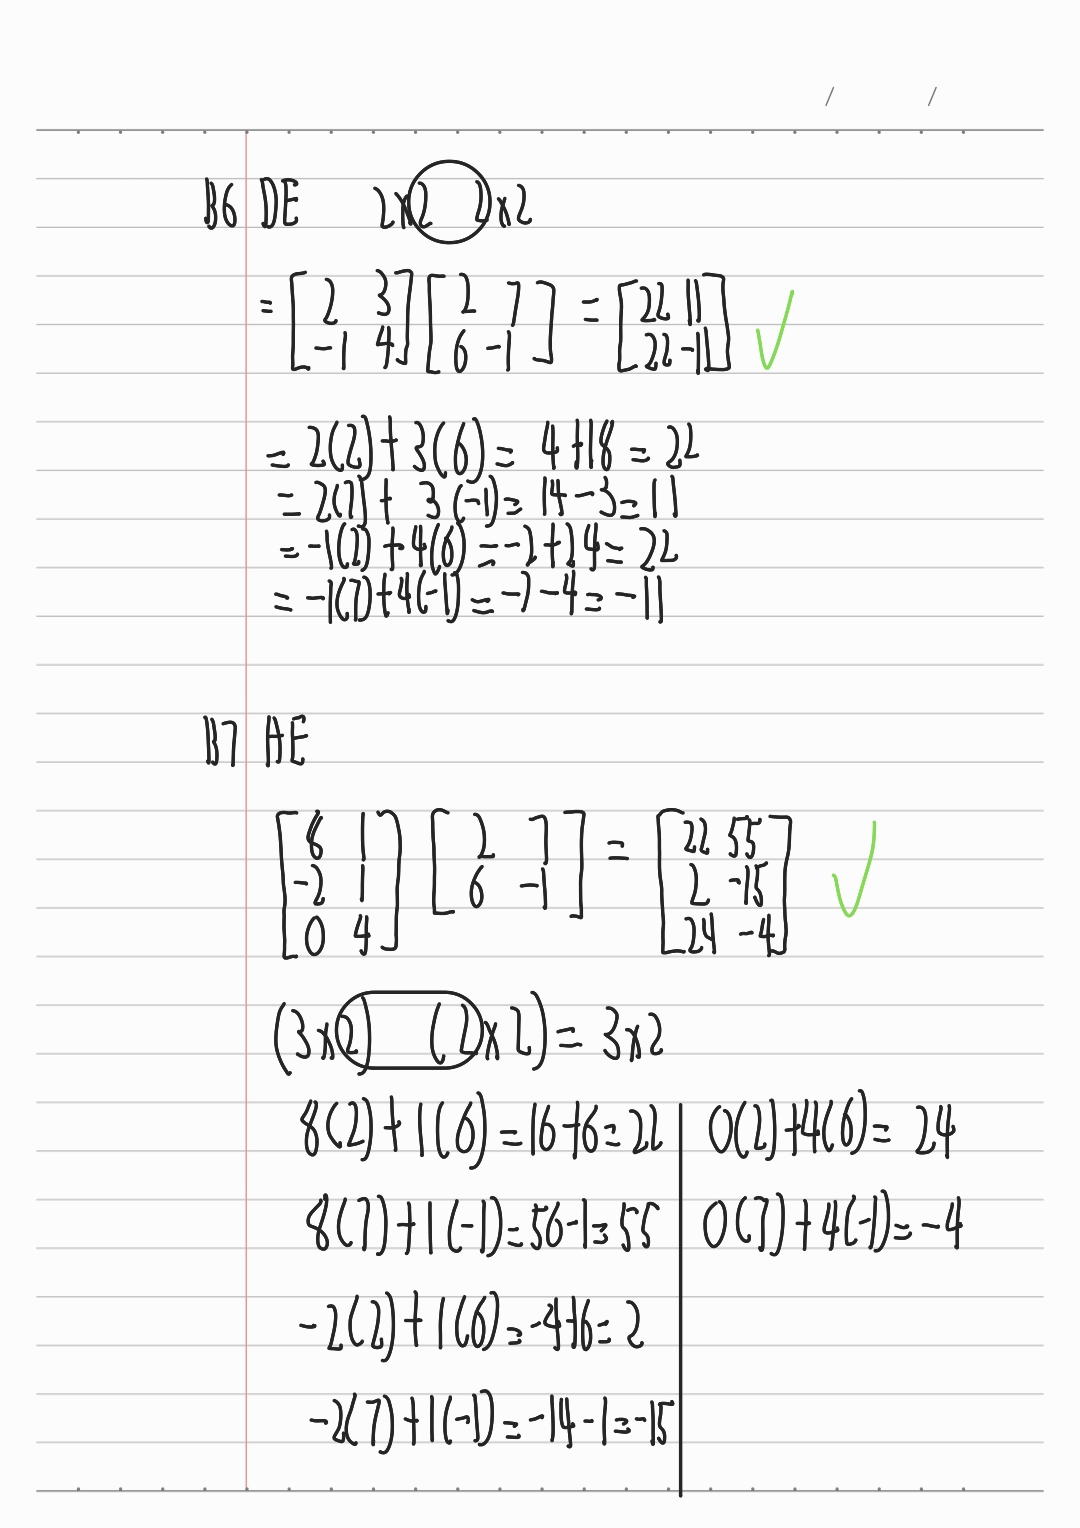 / /
B6 DE 2x2 2x2
= [2 3] [2 7] = [22 11] ✓
[-1 4] [6 -1] [22 -11]
= 2(2) + 3(6) = 4 +18 = 22
= 2(7) + 3(-1) = 14 - 3 = 11
= -1(2) + 4(6) = -2 + 24 = 22
= -1(7) + 4(-1) = -7 - 4 = -11
B7 AE
[8 1] [2 7] = [22 55] ✓
[-2 1] [6 -1] [2 -15]
[0 4] [24 -4]
(3x2) (2x2) = 3x2
8(2) + 1(6) = 16 +6 = 22
8(7) + 1(-1) = 56 -1 = 55
-2(2) + 1(6) = -4+6 = 2
-2(7) + 1(-1) = -14 - 1 = -15
0(2)+4(6) = 24
0(7) + 4(-1) = -4